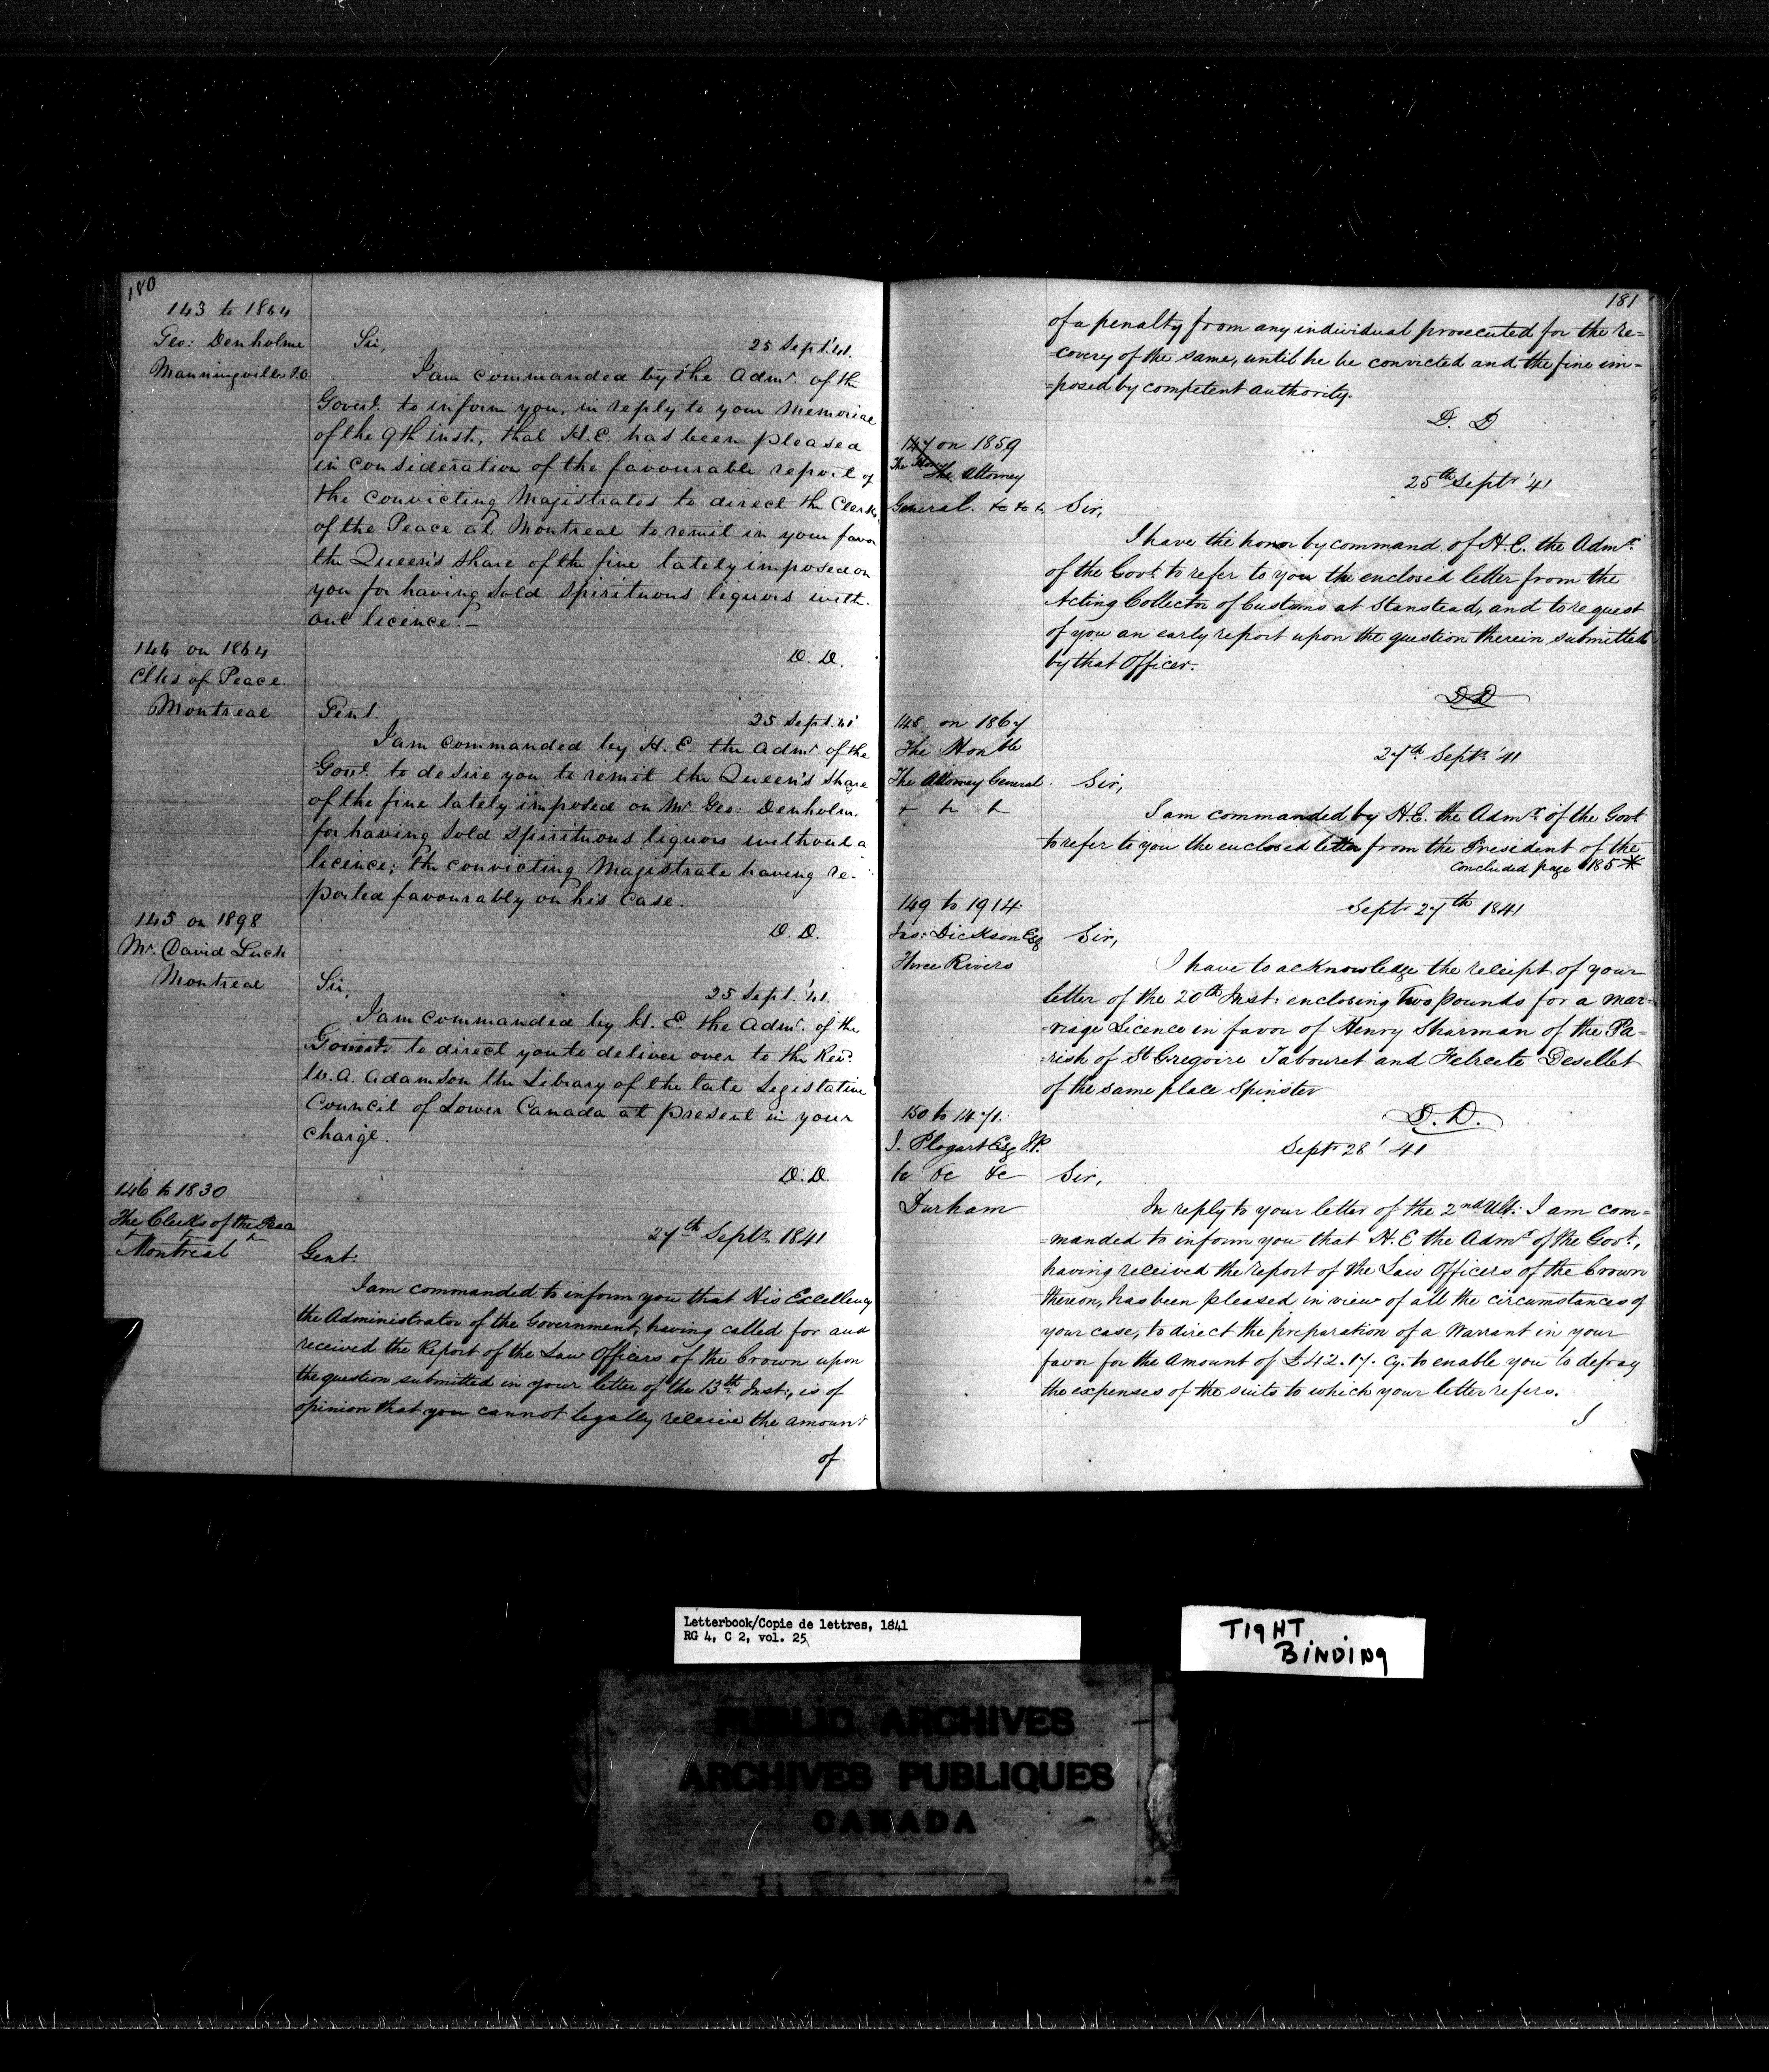 180
143 to 1864
Geo: Denholme
Manningville P.O
Sir,
25 Sept. '41.
I am commanded by the Admr. of the
Govert. to inform you, in reply to your Memorial
of the 9th inst., that H.E. has been pleased
in consideration of the favourable report of
the convicting Magistrates to direct the Clerks
of the Peace at Montreal to remit in your favor
the Queen's share of the fine lately imposed on
you for having sold spirituous liquors with-
out licence. -
D. D.
144 on 1864
Clks of Peace
Montreal
Gent.
25 Sept. '41
I am commanded by H. E. the Admr. of the
Govt. to desire you to remit the Queen's share
of the fine lately imposed on Mr. Geo: Denholm,
for having sold spirituous liquors without a
licence; the convicting Magistrate having re-
ported favourably on his case.
D. D.
145 on 1898
Mr. David Luck
Montreal
Sir,
25 Sept. '41.
I am commanded by H. E. the Admr. of the
to direct you to deliver over to the Revd.
W. A. Adamson the Library of the late Legislative
Council of Lower Canada at present in your
charge.
D. D.
146 to 1830
The Clerks of the Peace
Montreal
27th Septr. 1841
Gent:
I am commanded to inform you that His Excellency
the Administrator of the Government, having called for and
received the Report of the Law Officers of the Crown upon
the question submitted in your letter of the 13th Inst., is of
opinion that you cannot legally receive the amount
of
181
of a penalty from any individual prosecuted for the re=
=covery of the same, until he be convicted and the fine im-
=posed by competent authority.
D. D
147 on 1859
The Attorney
General. &c &c &c
25th Septr '41
Sir,
I have the honor by command of H.E. the Admr.
of the Govt. to refer to you the enclosed letter from the
Acting Collector of Customs at Stanstead, and to request
of you an early report upon the question therein submitted
by that Officer.
D D
148 on 1867
The Honble
The Attorney General.
27th Septr '41
Sir,
I am commanded by H.E. the Admr. of the Govt
to refer to you the enclosed letter from the President of the
Concluded page 185 *
149 to 1914
Jas: Dickson Esq
Three Rivers
Septr 27th 1841
Sir,
I have to acknowledge the receipt of your
letter of the 20th Inst: enclosing Two pounds for a Mar=
=riage Licence in favor of Henry Sharman of the Pa=
=rish of St Gregoire Tabouret and Felicite Desellet
of the same place Spinster
D. D.
150 to 1471.
Esq J.P.
&c &c &c
Durham
Septr 28' 41
Sir,
In reply to your letter of the 2nd Ult: I am com=
=manded to inform you that H. E the Admr of the Govt,
having received the report of the Law Officers of the Crown
thereon, has been pleased in view of all the circumstances of
your case, to direct the preparation of a Warrant in your
favor for the amount of £42. 17. Cy. to enable you to defray
the expenses of the suits to which your letter refers.
I
Letterbook/Copie de lettres, 1841
RG 4, C 2, vol. 25
TIGHT
BINDING
PUBLIC ARCHIVES
ARCHIVES PUBLIQUES
CANADA